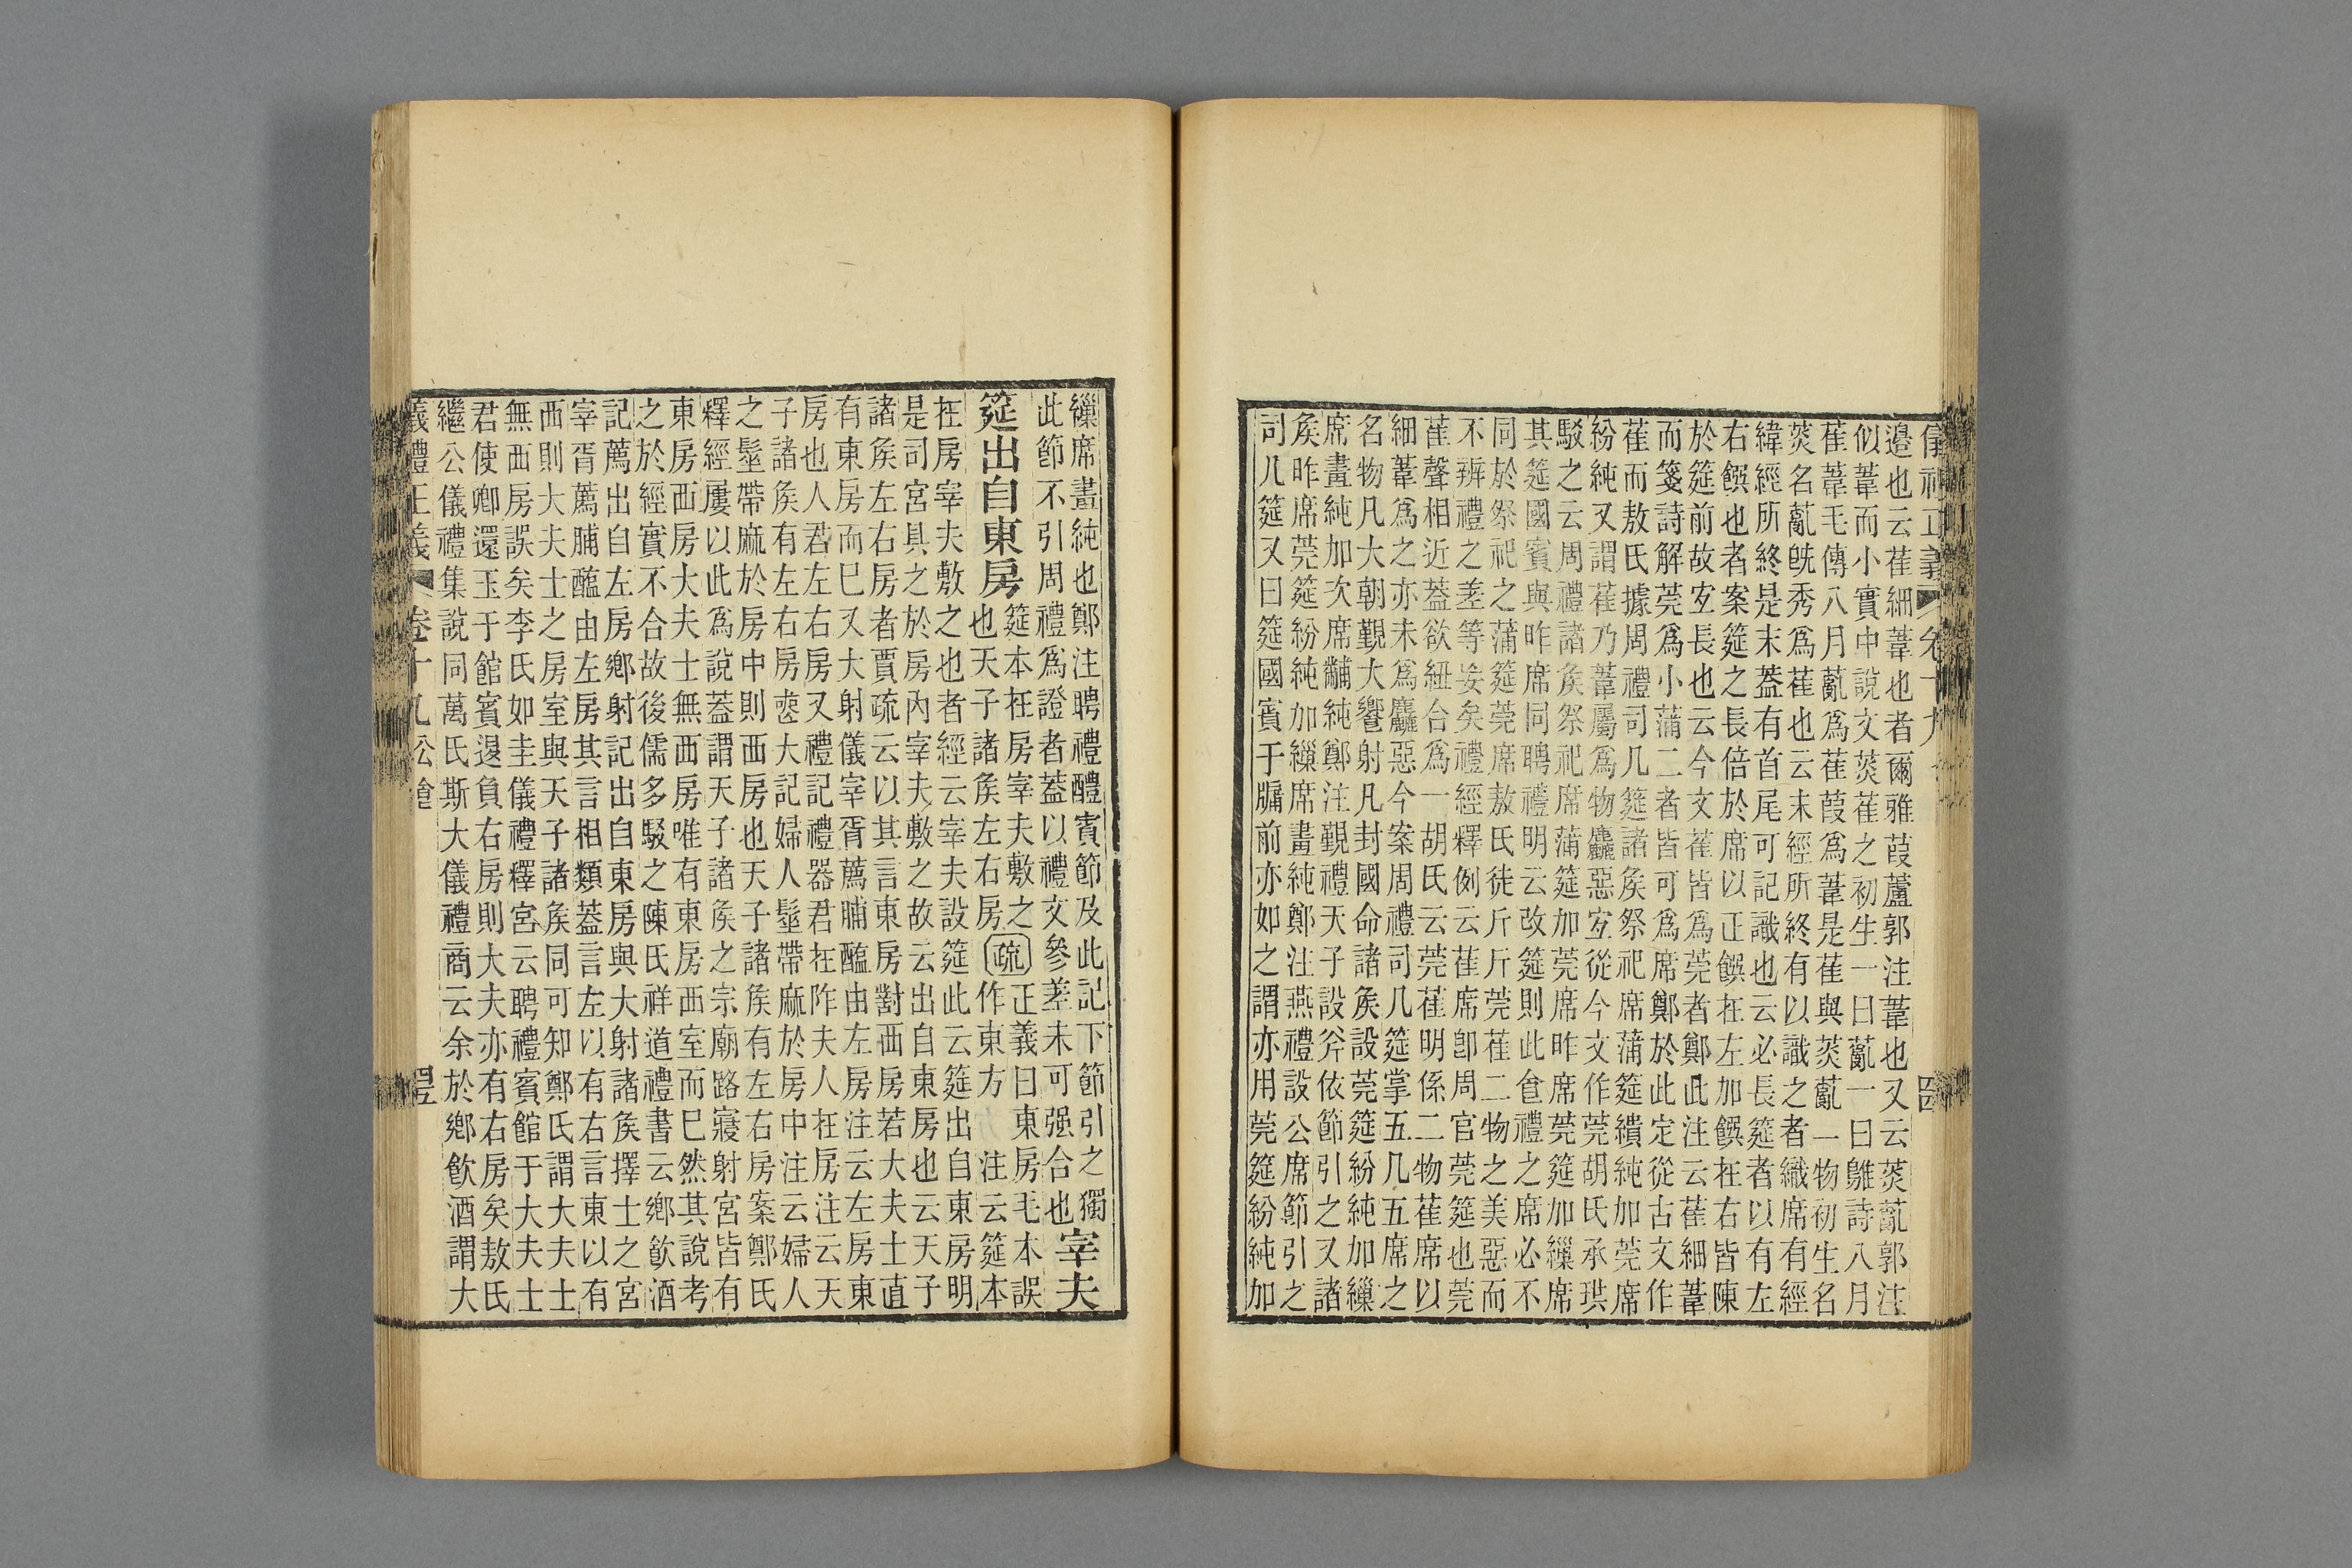 儀禮正義 卷十九 四
邉也云萑細葦也者爾雅葭蘆郭注葦也又云菼薍郭注
似葦而小實中說文菼萑之初生一曰薍一曰鵻詩八月
萑葦毛傳八月薍爲萑葭爲葦是萑與菼薍一物初生名
菼名薍旣秀爲萑也云末經所終有以識之者織席有經
緯經所終是末葢有首尾可記識也云必長筵者以有左
右饌也者案筵之長倍於席以正饌在左加饌在右皆陳
於筵前故宐長也云今文萑皆爲莞者鄭此注云萑細葦
而箋詩解莞爲小蒲二者皆可爲席鄭於此定從古文作
萑而敖氏據周禮司几筵諸矦祭祀席蒲筵繢純加莞席
紛純又謂萑乃葦屬爲物麤惡宐從今文作莞胡氏承珙
駮之云周禮諸矦祭祀席蒲筵加莞席昨席莞筵加繅席
其筵國賓與昨席同聘禮明云改筵則此食禮之席必不
同於祭祀之蒲筵莞席敖氏徒斤斤莞萑二物之美惡而
不辨禮之差等妄矣禮經釋例云萑席卽周官莞筵也莞
萑聲相近葢欲紐合爲一胡氏云莞萑明係二物萑席以
細葦爲之亦未爲麤惡今案周禮司几筵掌五几五席之
名物凡大朝覲大饗射凡封國命諸矦設莞筵紛純加繅
席畫純加次席黼純鄭注覲禮天子設斧依節引之又諸
矦昨席莞筵紛純加繅席畫純鄭注燕禮設公席節引之
司几筵又曰筵國賓于牖前亦如之謂亦用莞筵紛純加
繅席畫純也鄭注聘禮醴賓節及此記下節引之獨
此節不引周禮爲證者葢以禮文參差未可强合也宰夫
筵出自東房筵本在房宰夫敷之也天子諸矦左右房疏正義曰東房毛本誤作東方注云筵本
在房宰夫敷之也者經云宰夫設筵此云筵出自東房明
是司宮具之於房內宰夫敷之故云出自東房也云天子
諸矦左右房者賈疏云以其言東房對西房若大夫士直
有東房而已又大射儀宰胥薦脯醢由左房注云左房東
房也人君左右房又禮記禮器君在阼夫人在房注云天
子諸矦有左右房喪大記婦人髽帶麻於房中注云婦人
之髽帶麻於房中則西房也天子諸矦有左右房案鄭氏
釋經屢以此爲說葢謂天子諸矦之宗廟路寢射宮皆有
東房西房大夫士無西房唯有東房西室而已然其說考
之於經實不合故後儒多駮之陳氏祥道禮書云鄉飲酒
記薦出自左房鄉射記出自東房與大射諸矦擇士之宮
宰胥薦脯醢由左房其言相類葢言左以有右言東以有
西則大夫士之房室與天子諸矦同可知鄭氏謂大夫士
無西房誤矣李氏如圭儀禮釋宮云聘禮賓館于大夫士
君使卿還玉于館賓退負右房則大夫亦有右房矣敖氏
繼公儀禮集說同萬氏斯大儀禮商云余於鄉飲酒謂大
儀禮正義 卷十九 公食 四五